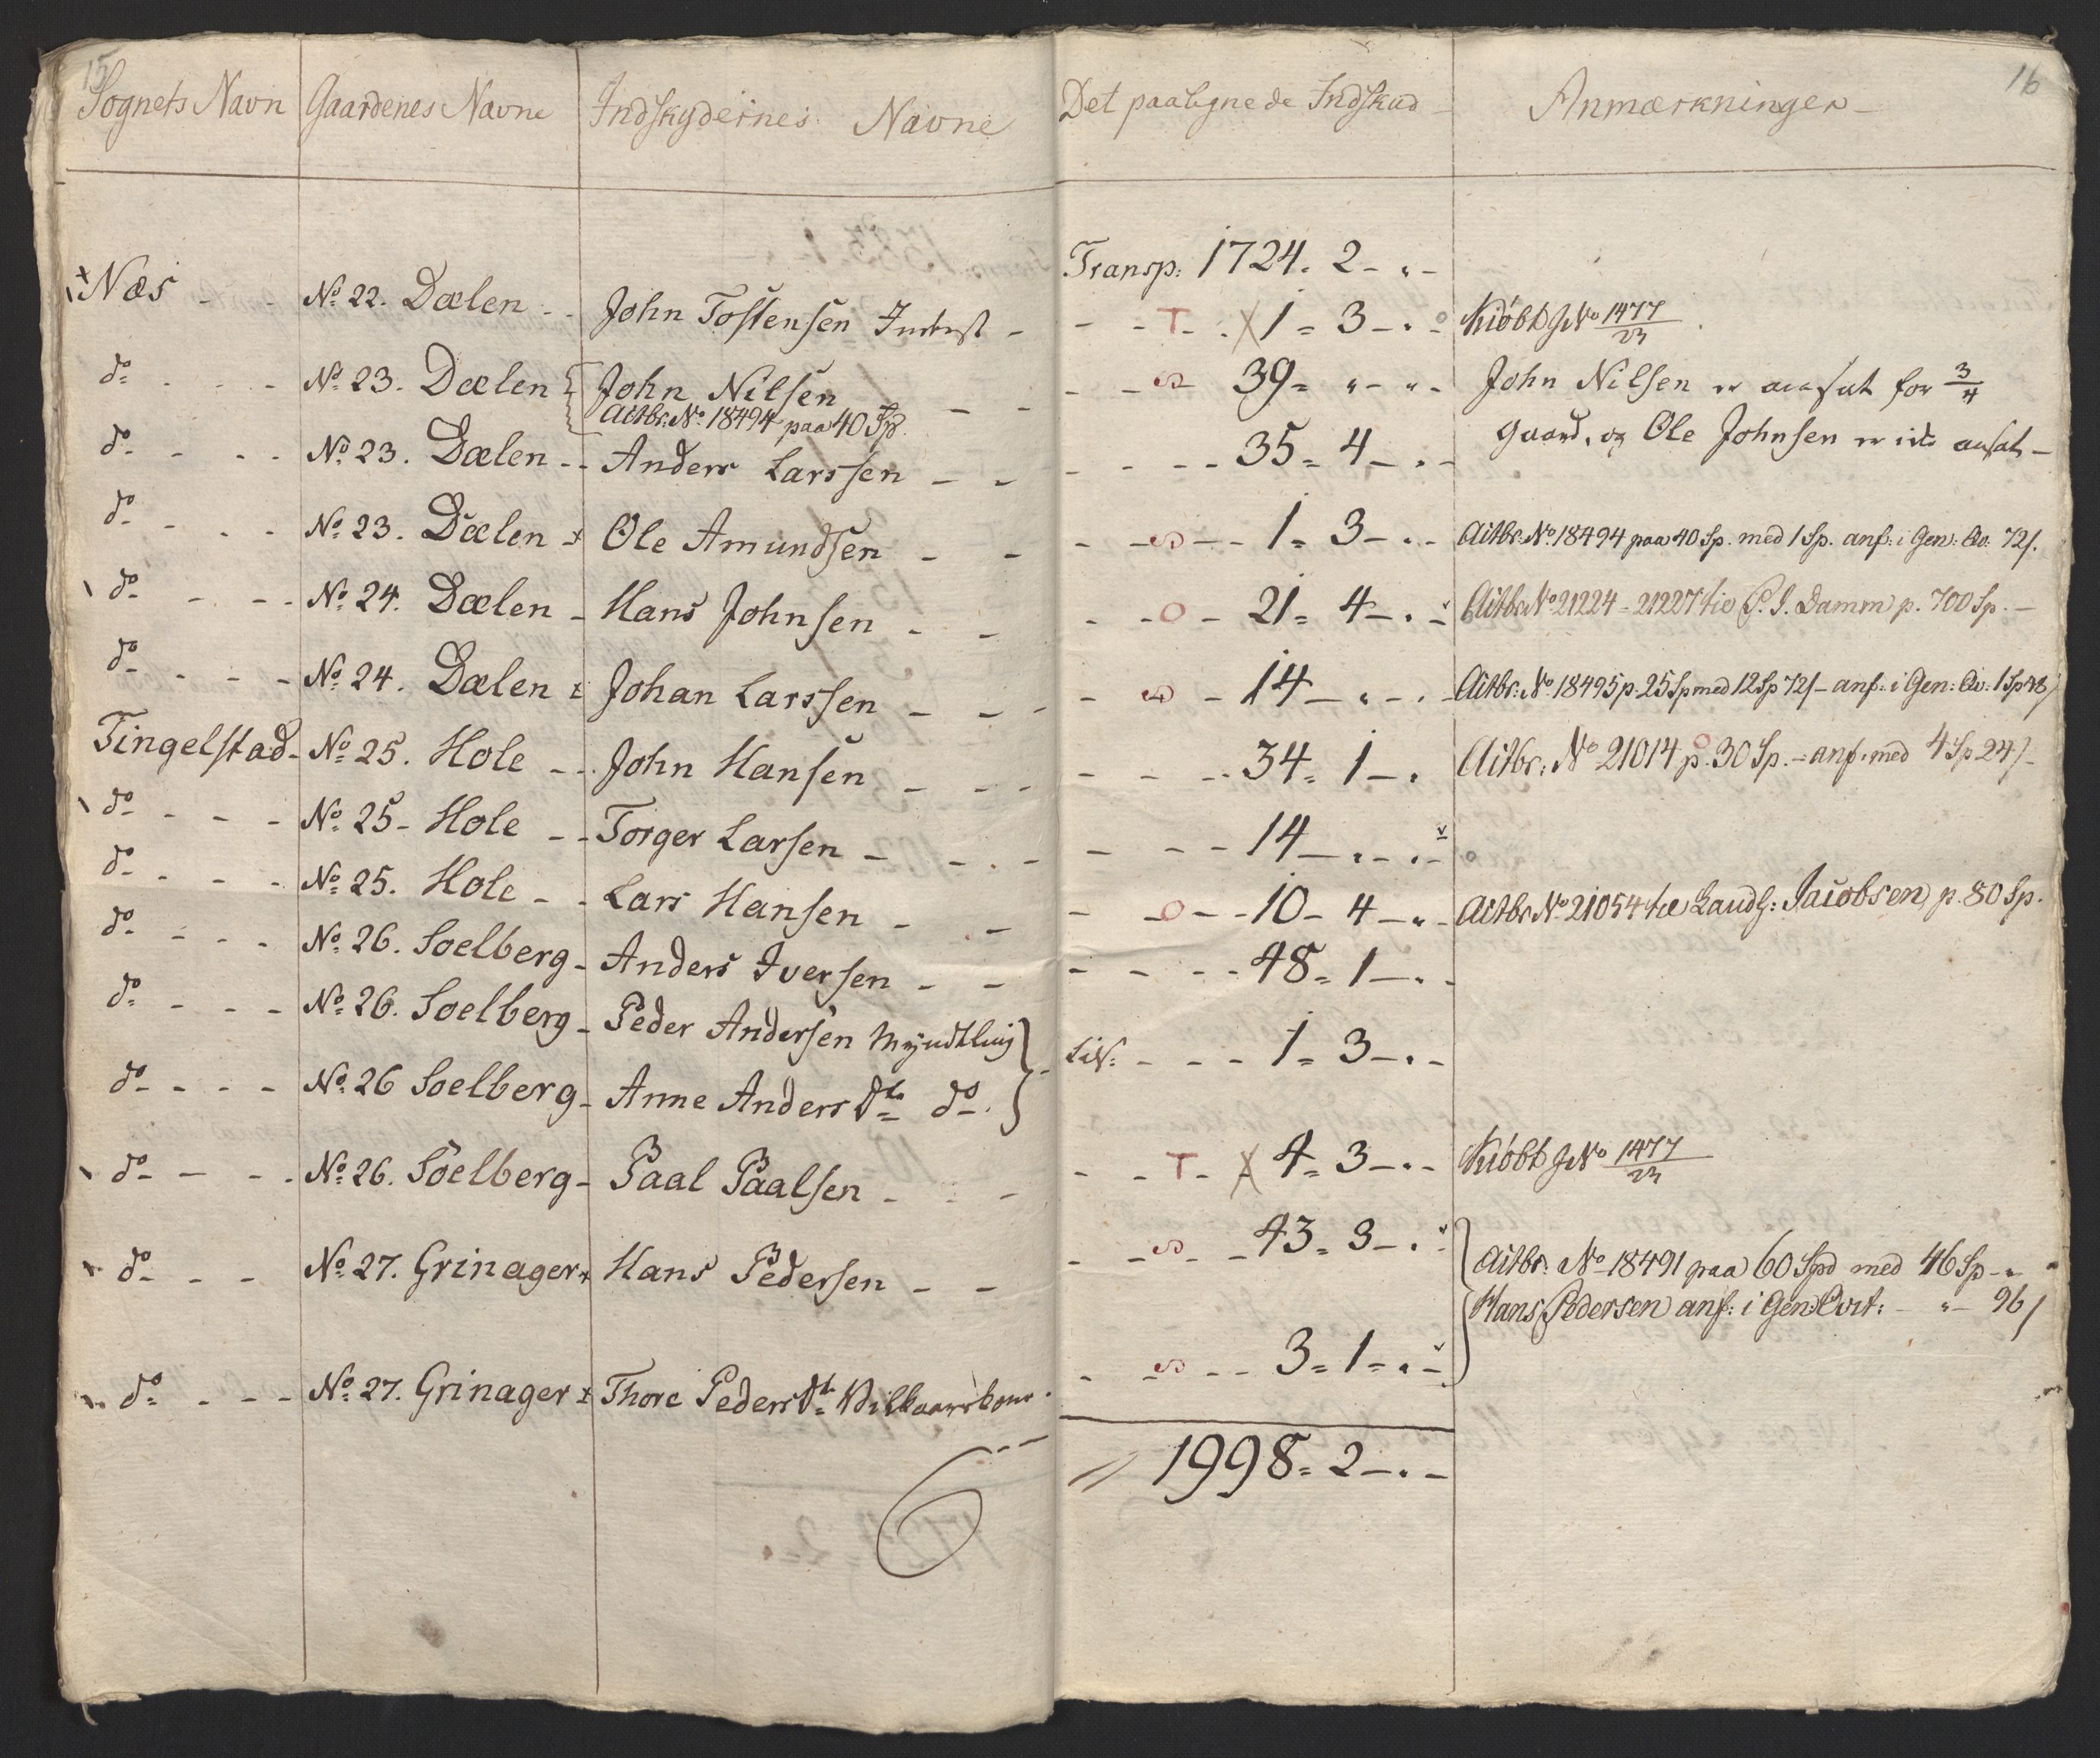 15 16
Sognets Navn Gaardenes Navne Indskydernes Navne Det paalignede Indskud Anmærkninger
Transp: 1724. 2 - " -
Næs - - No 22. Dælen - - John Tostensen - T - X 1 = 3 - " - Kiöbt JNo 1477/23
do - - - No 23. Dælen { John Nilsen - - 39 = " - " - John Nilsen er ansat for 3/4
Actbr: No 18494 paa 40 Sp.
do - - - No 23. Dælen - - Anders Larssen - - - - - 35 = 4 - " - Gaard, og Ole Johnsen er ick ansat -
do - - - No 23. Dælen + Ole Amundsen - - - - 1 = 3 - " - Actbr: No 18494 paa 40 Sp. med 1 Sp. anf: i Gen: Qv: 72/.
do - - - No 24. Dælen - Hans Johnsen - - - O - 21 = 4 - " - Actbr No 21224 - 21227 P. J. Damm p. 700 Sp. -
do - - - No 24. Dælen + Johan Larssen - - - 14 - " - " - Actbr: No 18495 p. 25 Sp med 12 Sp 72/ - anf: i Gen: Qv: 1 Sp 48/
Tingelstad - No 25. Hole - - John Hansen - - - - 34 = 1 - " Actbr: No 21014 p. 30 Sp. - anf. med 4 Sp 24/ -
do - - - No 25 - Hole - - Torger Larsen - - - - 14 - " - " -
do - - - No 25. Hole - - Lars Hansen - - - O - - 10 - 4 - " - Actbr No 21054 Jacobsen p. 80 Sp.
do - - - No 26. Soelberg - Anders Iversen - - - - - 48 = 1 - " -
do - - - No 26. Soelberg - Peder Andersen Myndtling } - - - - 1 = 3 - " -
do - - - No 26 Soelberg - Anne Anders Dtr do.
do - - - No 26. Soelberg - Paal Paalsen - - - T - X 4 = 3 - " - Kiöbt JNo 1477/23
do - - - No 27. Grinager + Hans Pedersen - - - - 43 = 3 - " - Actbr: No 18491 paa 60 Spd med 46 Sp - "
Hans Pedersen anf: i Gen: Qvit: - " - 96/
do - - - No 27. Grinager + Thore Peders Dtr - - - 3 = 1 = " -
// 1998 = 2 - " -